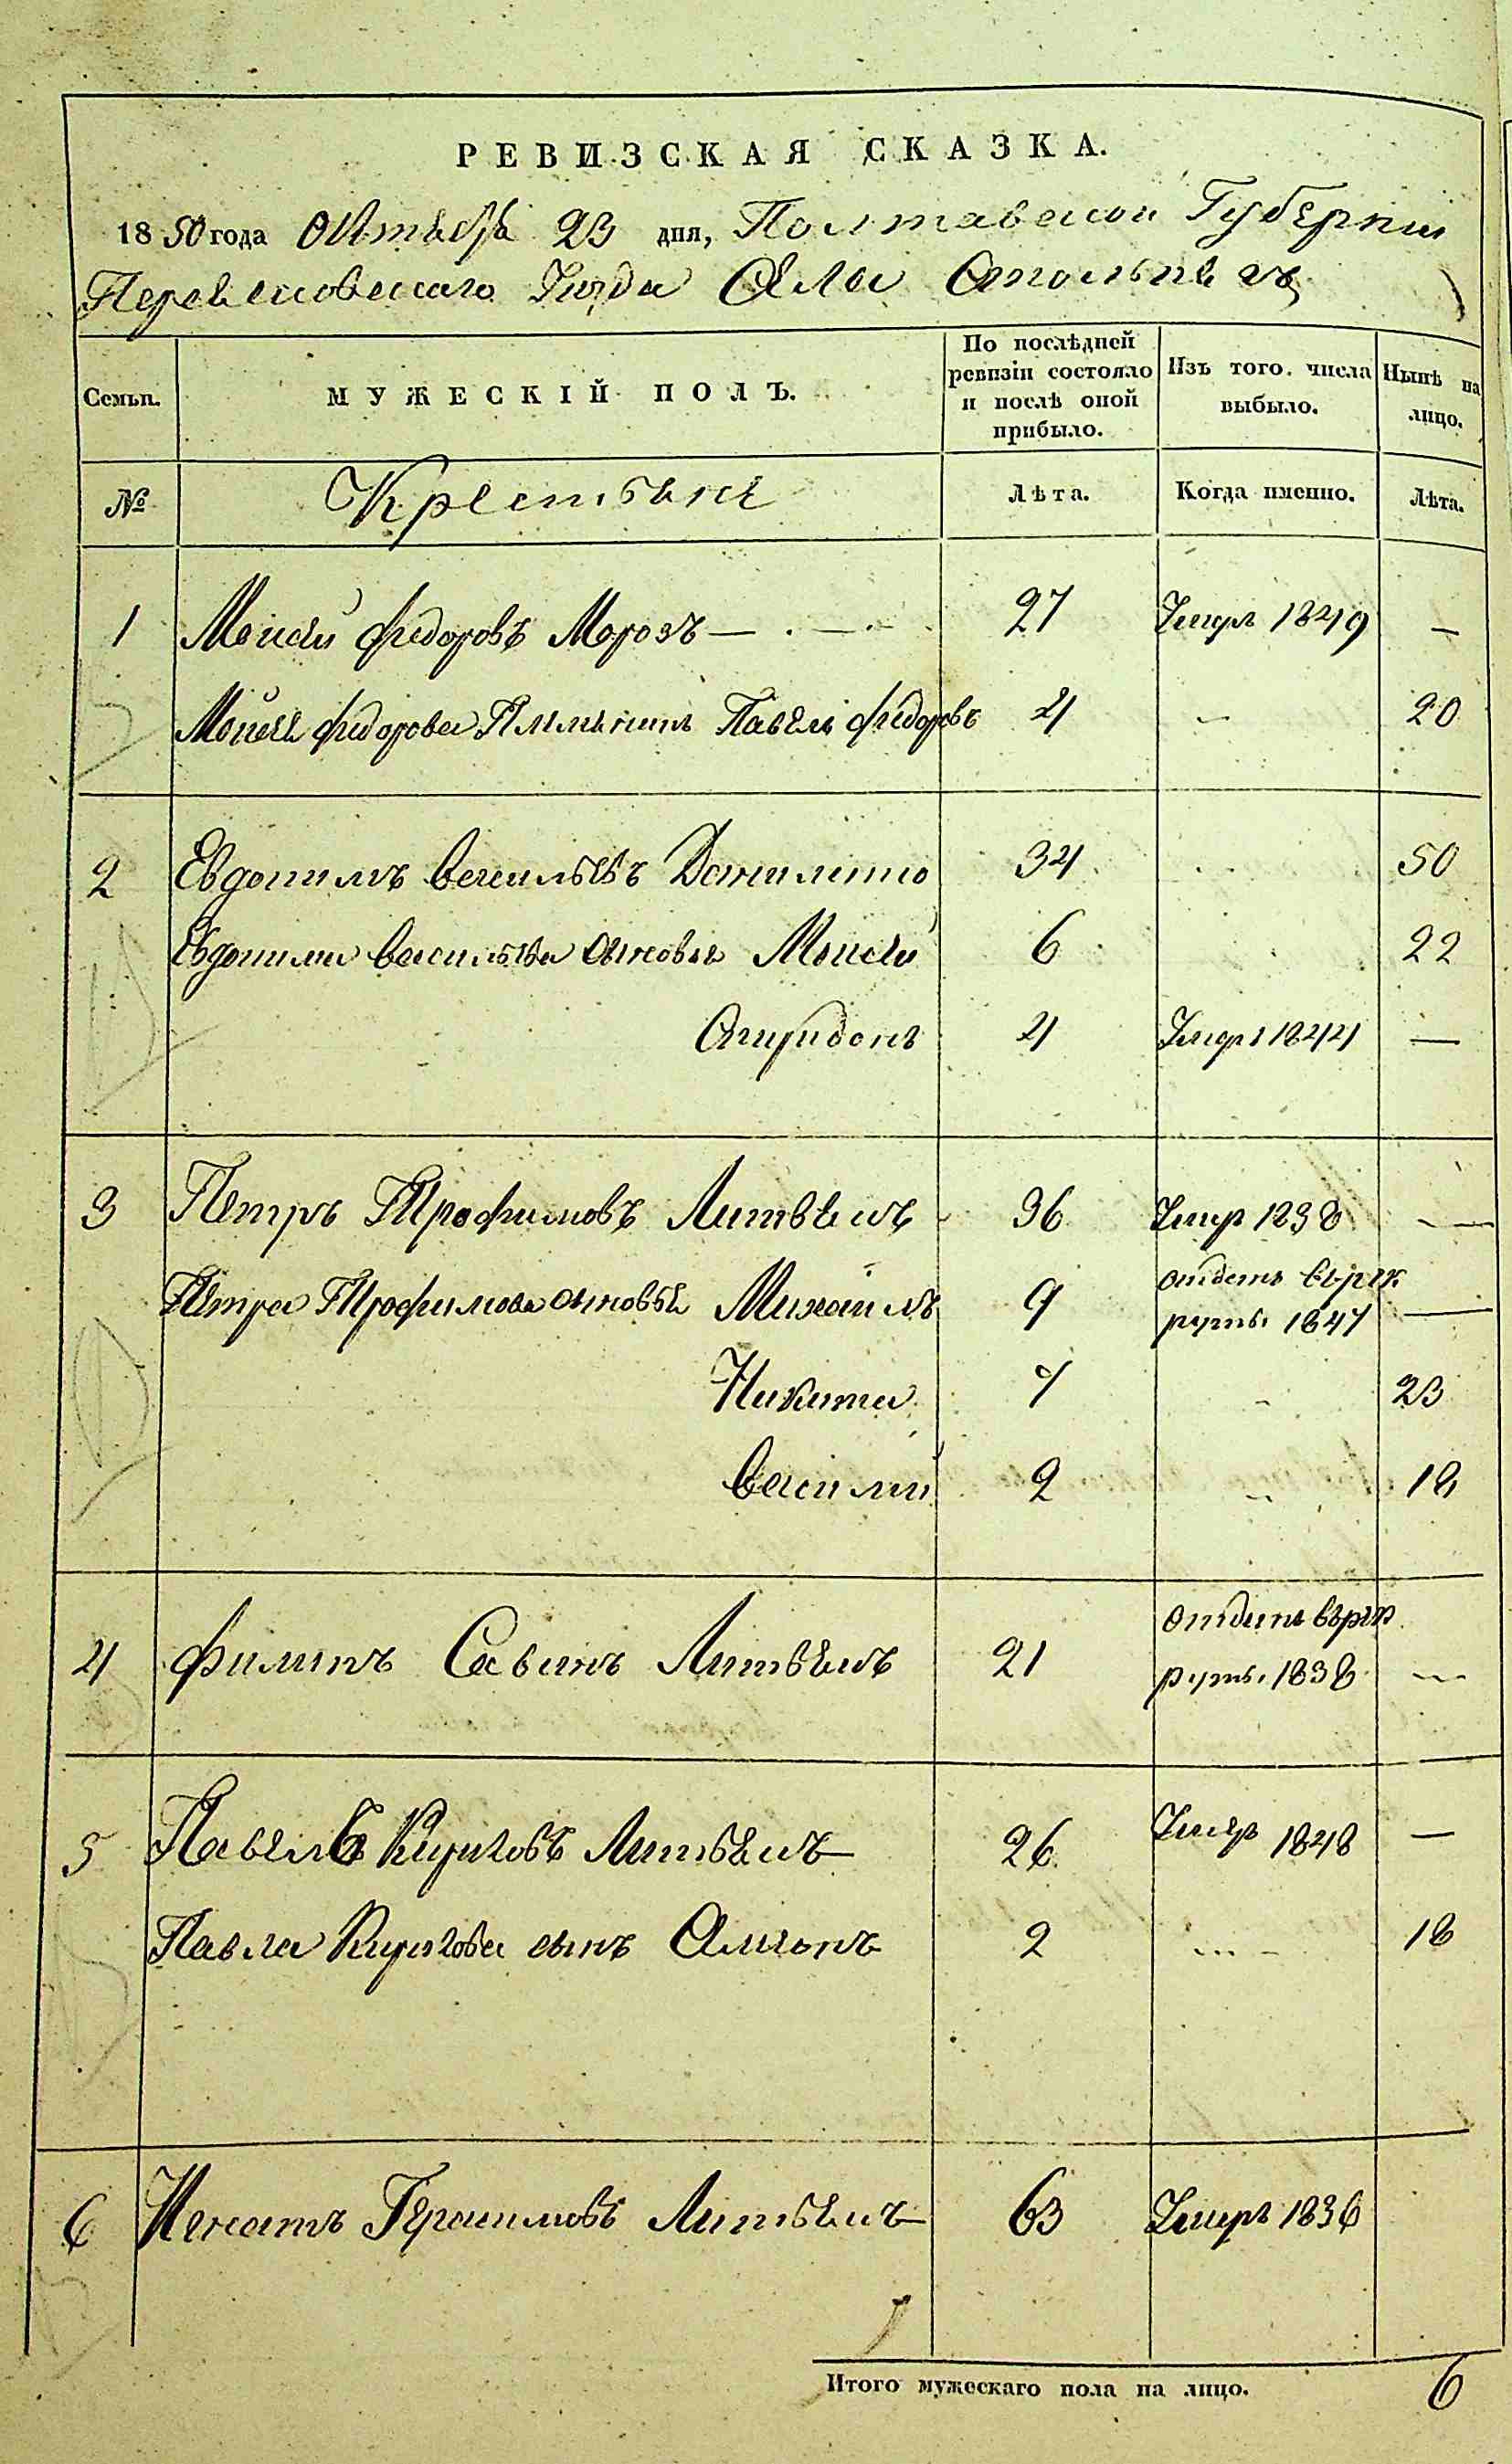 РЕВИЗСКАЯ СКАЗКА.
1850 года Октября 23 дня, Полтавской Губерніи
Переяславскаго Уезда Села
Семьи. МУЖЕСКІЙ ПОЛЪ. По послѣдней ревизіи состояло и послѣ оной прибыло. Изъ того числа выбыло. Нынѣ на лицо.
№ Крестьяне Лѣта. Когда именно. Лѣта.
1 Моисей Федоровъ Морозъ — 27 Умеръ 1849 —
Моисея Федорова Павелъ Федоровъ 4 20
2 Евдокимъ Васильевъ Даниленко 34 50
Евдокима Васильева сыновья Моисей 6 22
Спиридонъ 4 Умеръ 1844 —
3 Петръ Трофимовъ Литвенъ 36 Умер 1838 —
Петра Трофимова сыновья Михаилъ 9 отданъ въ рек
руты 1847 —
Никита 7 23
Василий 2 18
4 Филипъ Савинъ Литвенъ 21 отданъ въ рек
руты 1838 —
5 Павелъ Литвенъ 26 Умеръ 1848 —
Павла сынъ 2 18
6 Игнатъ Герасимовъ Литвенъ 63 Умеръ 1836
Итого мужескаго пола на лицо. 6